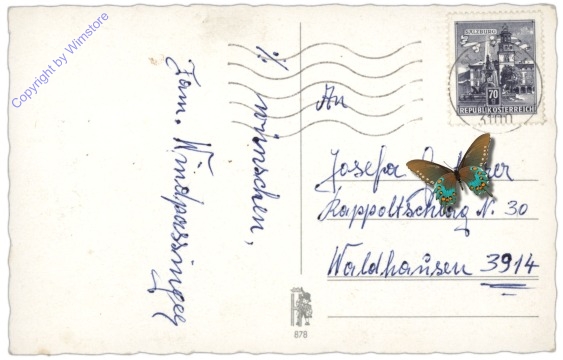 Copyright by Wimstore
%
wünschen,
Fam. Windpassinger
SALZBURG
70
REPUBLIK ÖSTERREICH
3100
An
Josefa
Rappoltschlag N. 30
Waldhausen 3914
878